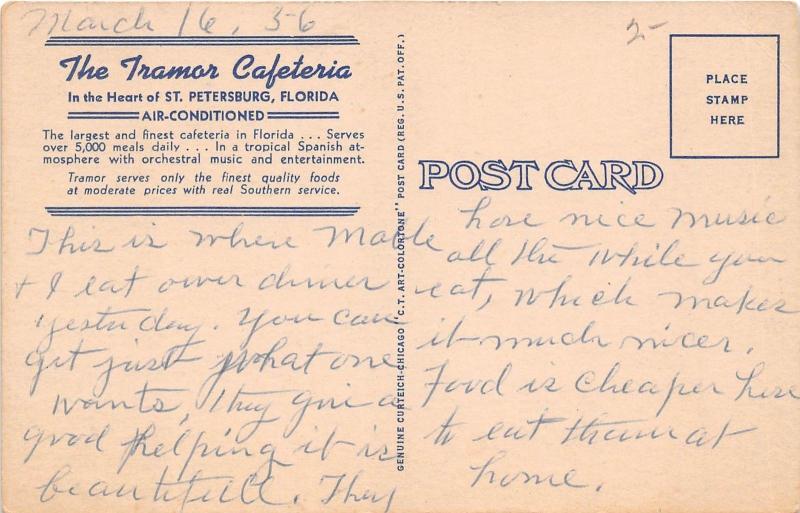 March 16, 56
2-
The Tramor Cafeteria
In the Heart of ST. PETERSBURG, FLORIDA
AIR-CONDITIONED
The largest and finest cafeteria in Florida . . . Serves
over 5,000 meals daily . . . In a tropical Spanish at-
mosphere with orchestral music and entertainment.
Tramor serves only the finest quality foods
at moderate prices with real Southern service.
This is where Mable
+ I eat ower dinner
yesturday. You can
get just what one
wants, they give a
good helping it is
beautifull. They
GENUINE CURTEICH-CHICAGO "C.T. ART-COLORTONE" POST CARD (REG. U.S. PAT. OFF.)
PLACE
STAMP
HERE
POST CARD
hose nice music
all the while you
eat, which makes
it much nicer.
Food is cheaper here
to eat tham at
home.